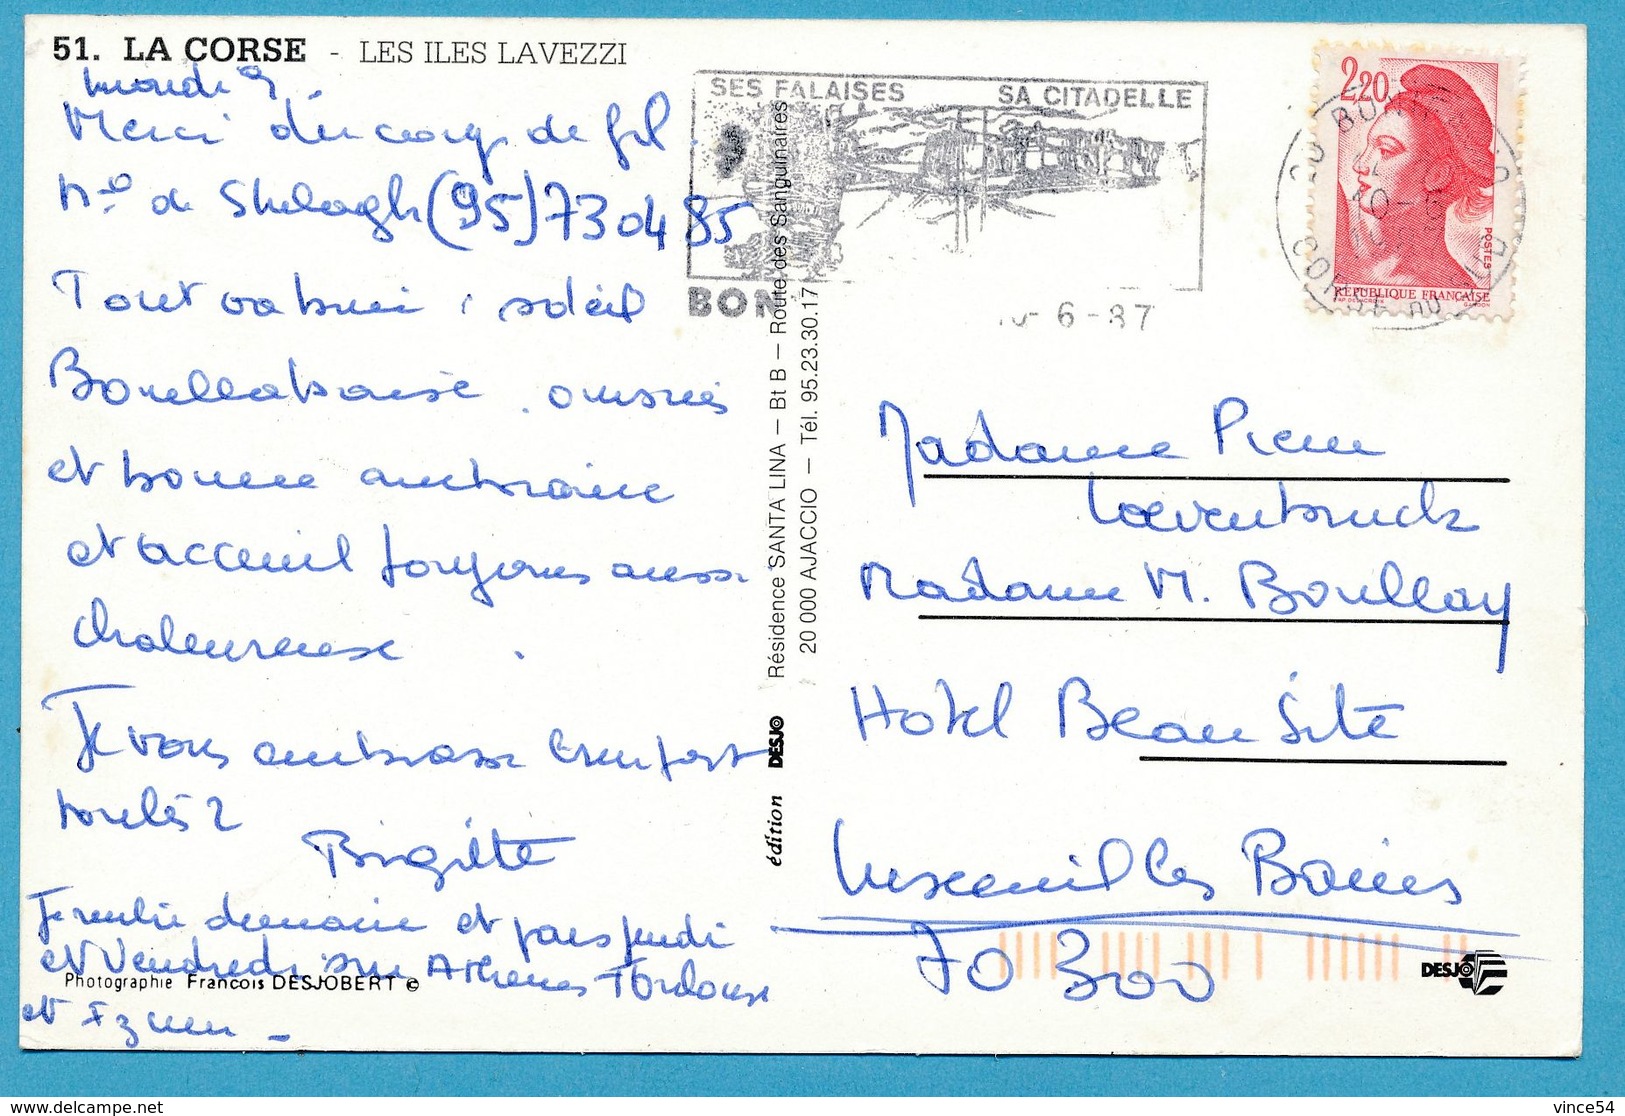 51. LA CORSE - LES ILES LAVEZZI
mardi 9.
Merci du coup de fil.
N° de Shelagh (95) 730485
Tout va bien : soleil
Bouillabaisse, oursins
et bonne ambiance
et acceuil toujours aussi
chaleureux.
Je vous embrasse bien fort
toutes 2
Brigitte
Je rentre demain et pars jeudi
et Vendredi sur Athènes Toulouse
et
Photographie Francois DESJOBERT ©
SES FALAISES SA CITADELLE
BON
6-87
Résidence SANTA LINA — Bt B — Route des Sanguinaires
20 000 AJACCIO — Tél. 95.23.30.17
édition DESJO
2,20
POSTES
REPUBLIQUE FRANÇAISE
GANDON
CORSE DU SUD
Madame Pierre
Loevenbruck
Madame M. Boullay
Hotel Beau Site
Luxeuil les Bains
70 300
DESJO
vince54